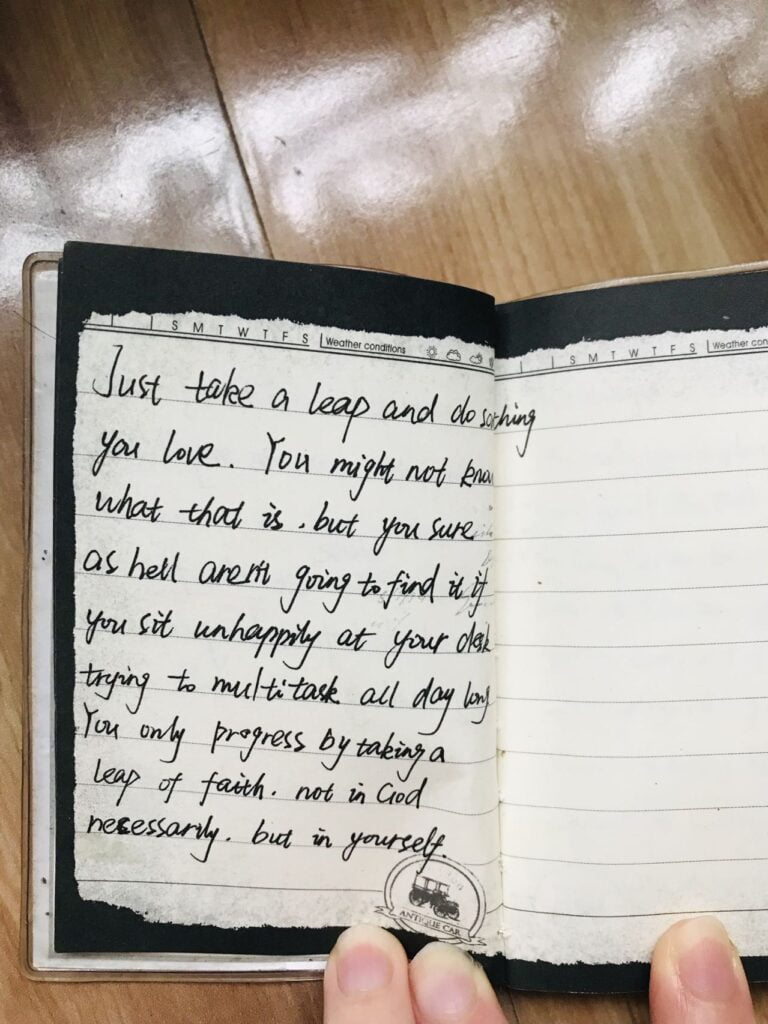 S M T W T F S Weather conditions
Just take a leap and do sothing
you love. You might not know
what that is. but you sure
as hell aren't going to find it if
you sit unhappily at your desk
trying to multitask all day long
You only progress by taking a
leap of faith. not in God
necessarily. but in yourself.
ANTIQUE CAR
S M T W T F S Weather con